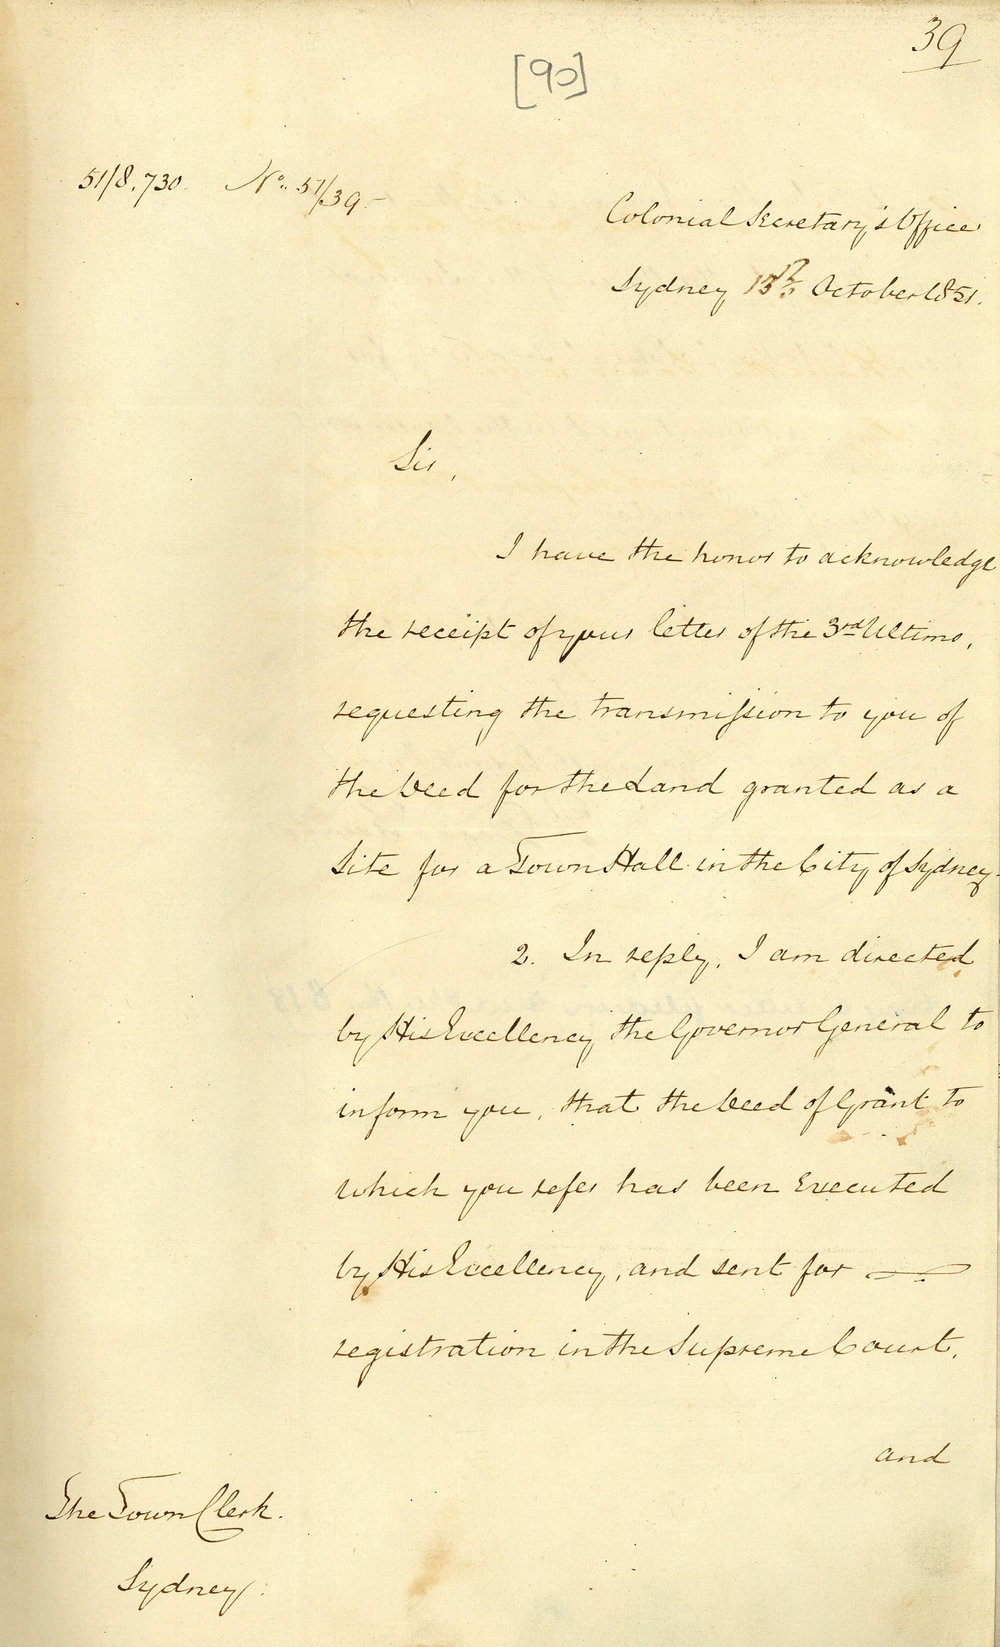 39
[90]
51/8,730. No. 51/39.-
Colonial Secretary's Office
Sydney 13th October 1851.
Sir,
I have the honor to acknowledge
the receipt of your letter of the 3rd Ultimo,
requesting the transmission to you of
the Deed for the Land granted as a
Site for a Town Hall in the City of Sydney.
2. In reply, I am directed
by His Excellency the Governor General to
inform you, that the Deed of Grant to
which you refer has been Executed
by His Excellency, and sent for
registration in the Supreme Court,
and
The Town Clerk.
Sydney.